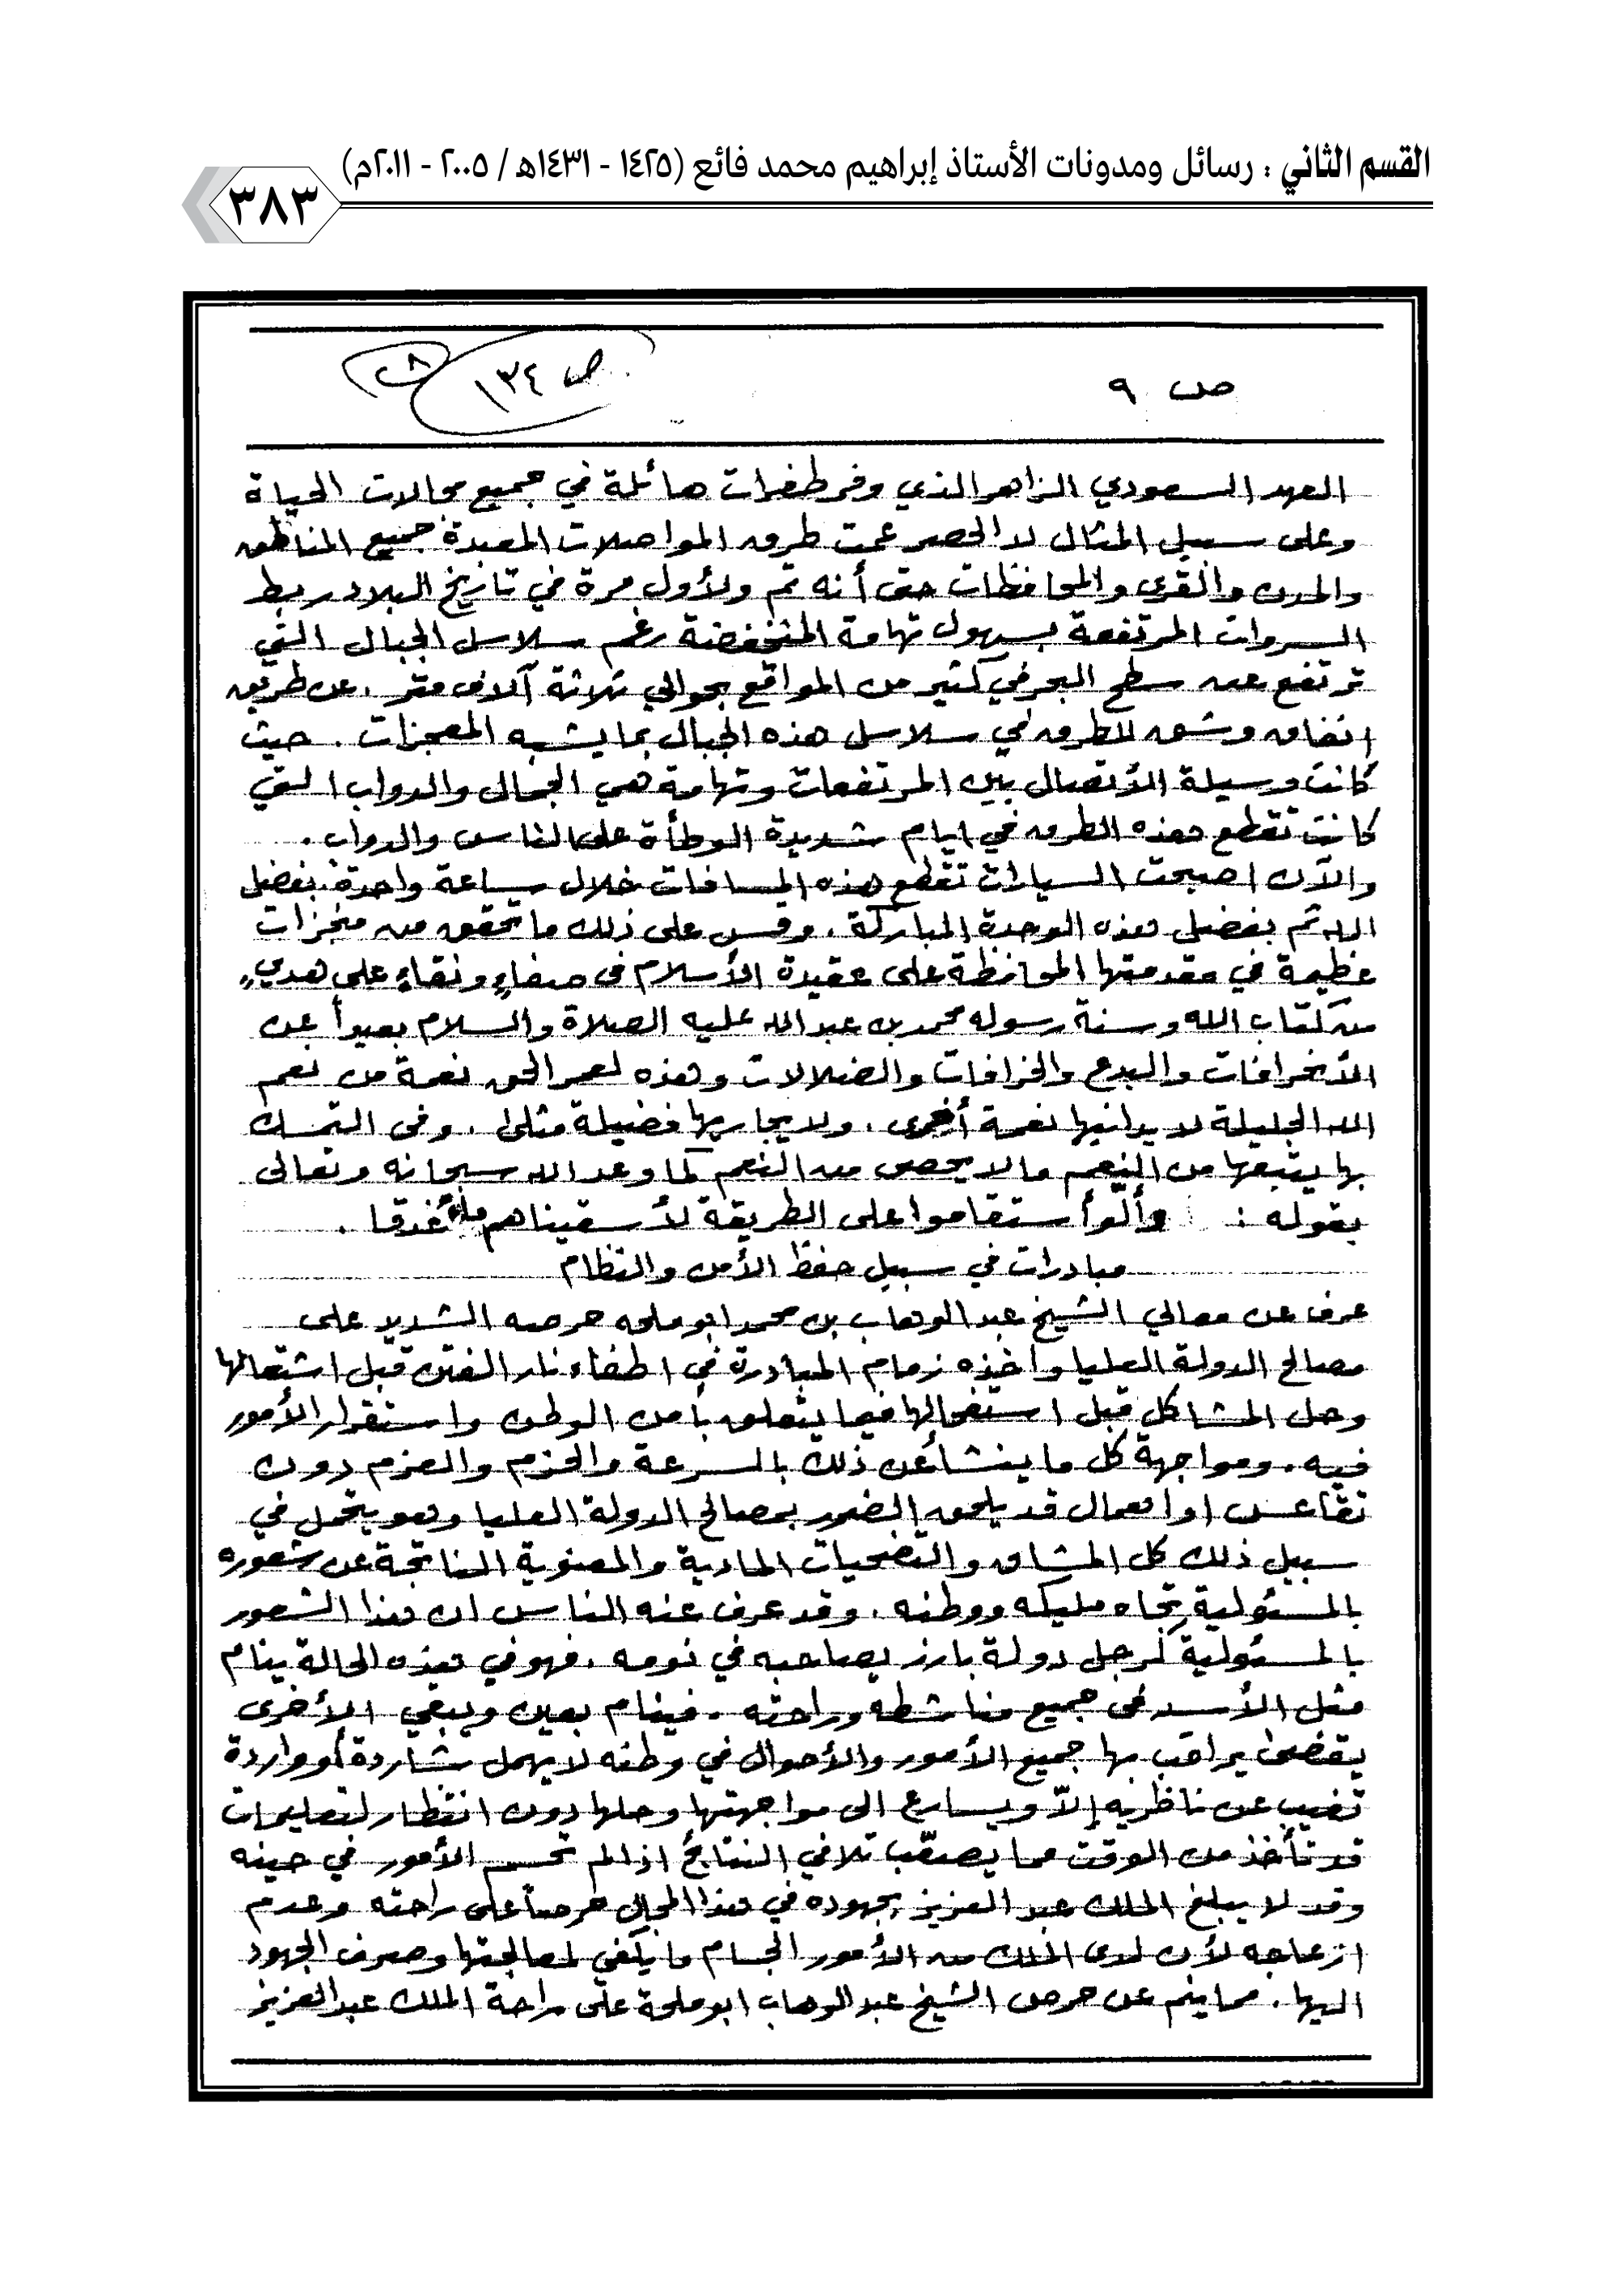 القسم الثاني : رسائل ومدونات الأستاذ إبراهيم محمد فائع (١٤٢٥ - ١٤٣١هـ / ٢٠٠٥ - ٢٠١١م)
٣٨٣
ص ٩
ص ١٣٤
العهد السعودي الزاهر الذي وفر طفرات هائلة في جميع مجالات الحياة
وعلى سبيل المثال لا الحصر عمت طرق المواصلات المعبدة جميع المناطق
والمدن والقرى والمحافظات حتى أنه تم ولأول مرة في تاريخ البلاد ربط
السروات المرتفعة بسهول تهامة المنخفضة رغم سلاسل الجبال التي
ترتفع عن سطح البحر في كثير من المواقع بحوالي ثلاثة آلاف متر . عن طريق
انفاق وشق للطرق في سلاسل هذه الجبال بما يشبه المعجزات . حيث
كانت وسيلة الأتصال بين المرتفعات وتهامة هي الجمال والدواب التي
كانت تقطع هذه الطرق في ايام شديدة الوطأة على الناس والدواب .
والآن اصبحت السيارات تقطع هذه المسافات خلال ساعة واحدة بفضل
الله ثم بفضل هذه الوحدة المباركة . وقس على ذلك ما تحقق من منجزات
عظيمة في مقدمتها المحافظة على عقيدة الأسلام في صفاءٍ ونقاءٍ على هديٍ
من كتاب الله وسنة رسوله محمد بن عبدالله عليه الصلاة والسلام بعيداً عن
الأنحرافات والبدع والخرافات والضلالات وهذه لعمر الحق نعمة من نعم
الله الجليلة لا يدانيها نعمة أخرى . ولا يجاريها فضيلة مثلى . وفي التمسك
بها يتبعها من النعم مالا يحصى من النعم كما وعد الله سبحانه وتعالى
بقوله : وألّو أستقاموا على الطريقة لأسقيناهم ماء غدقا .
مبادرات في سبيل حفظ الأمن والنظام
عرف عن معالي الشيخ عبدالوهاب بن محمد ابو ملحه حرصه الشديد على
مصالح الدولة العليا وأخذه زمام المبادرة في اطفاء نار الفتن قبل اشتعالها
وحل المشاكل قبل استفحالها فيما يتعلق بأمن الوطن واستقرار الأمور
فيه . ومواجهة كل ما ينشأ عن ذلك بالسرعة والحزم والعزم دون
تقاعس او اهمال قد يلحق الضرر بمصالح الدولة العليا وهو يتحمل في
سبيل ذلك كل المشاق والتضحيات المادية والمعنوية الناتجة عن شعوره
بالمسئولية تجاه مليكه ووطنه . وقد عرف عنه الناس ان هذا الشعور
بالمسئولية كرجل دولة بارز يصاحبه في نومه . فهو في هذه الحالة ينام
مثل الأسد في جميع مناشطه وراحته . فينام بعين ويبقي الأخرى
يقضى يراقب بها جميع الأمور والأحوال في وطنه لا يهمل شاردة أو واردة
تغيب عن ناظريه إلاّ ويسارع الى مواجهتها وحلها دون انتظار لتعليمات
قد تأخذ من الوقت مما يصعّب تلافي النتائج اذا لم تحسم الأمور في حينه
وقد لا يبلغ الملك عبد العزيز بجهوده في هذا المجال حرصاً على راحته وعدم
ازعاجه لأن لدى الملك من الأمور الجسام ما يكفي لمعالجتها وصرف الجهود
اليها . مما ينم عن حرص الشيخ عبدالوهاب ابو ملحة على راحة الملك عبدالعزيز